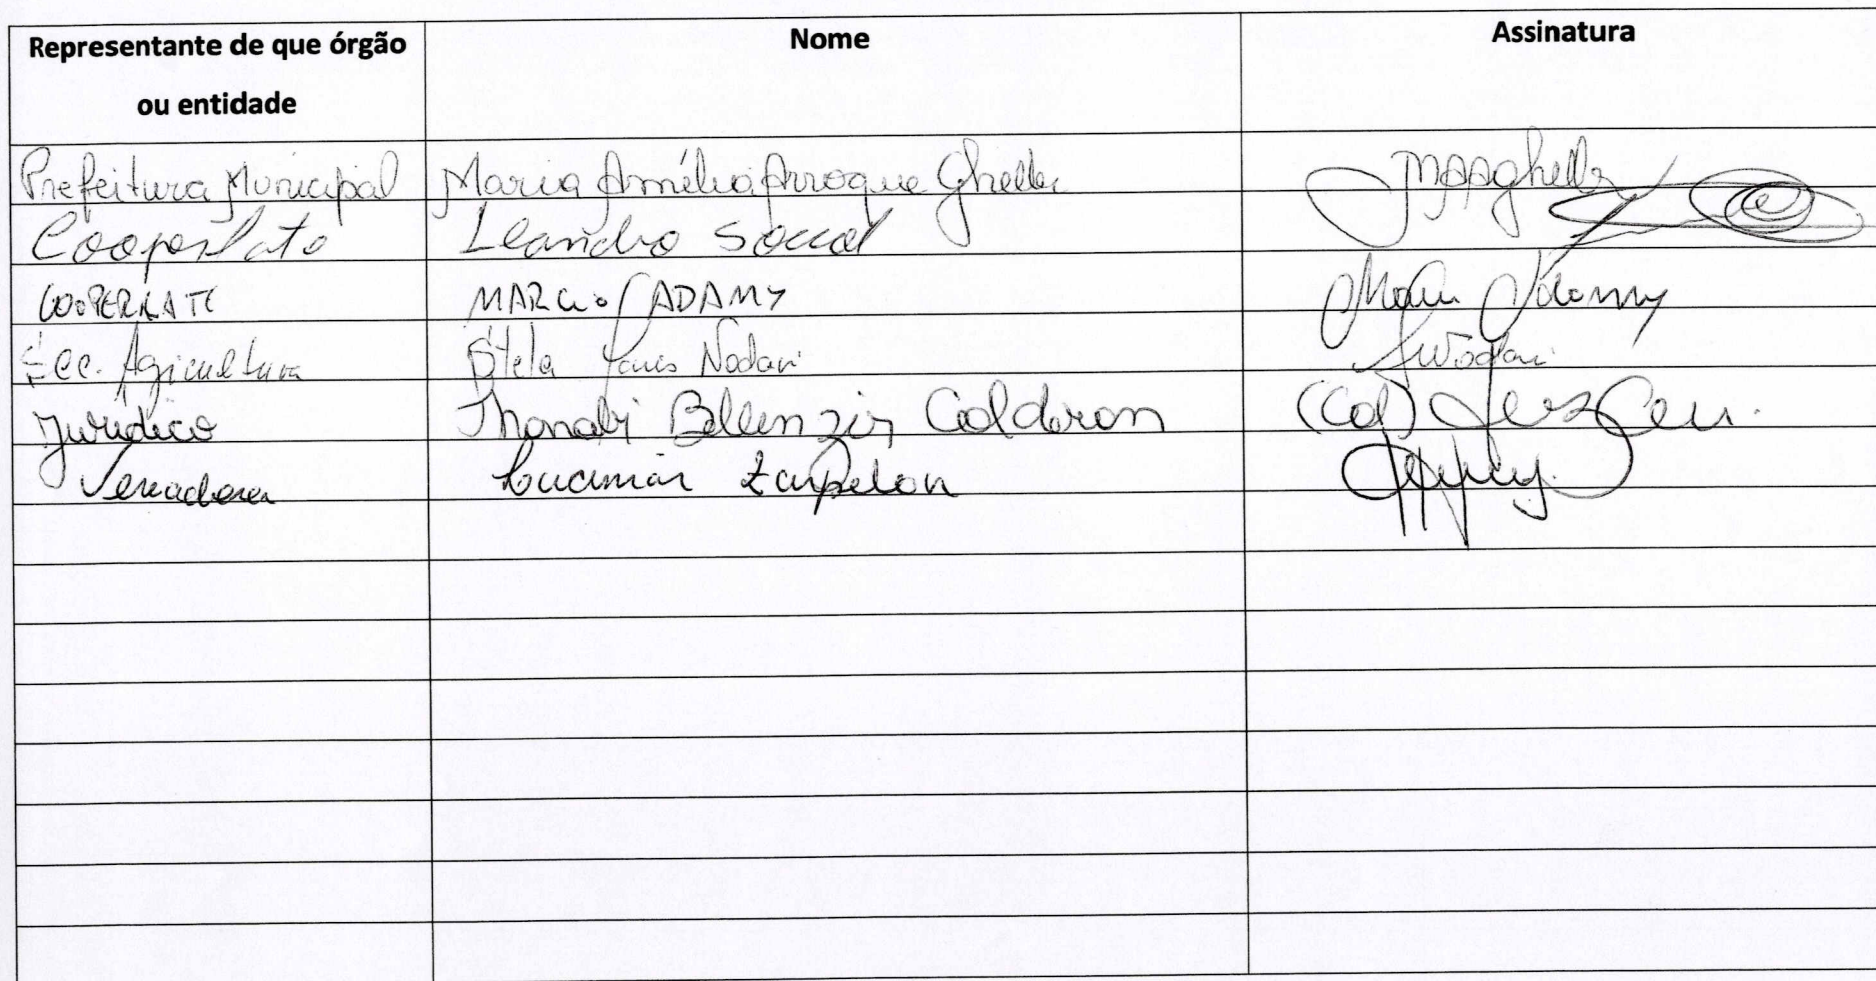 Representante de que órgão ou entidade Nome Assinatura
Prefeitura Municipal Maria Amélia Arroque Gheller MAAGheller
Cooperlate Leandro Soccol
COOPERLATE MARCIO ADAMY Marcio Adamy
Sec. Agricultura Stela Nodari Nodari
Jurídico Thonabi Calderon
Vereadora Lucimar Zarpelon